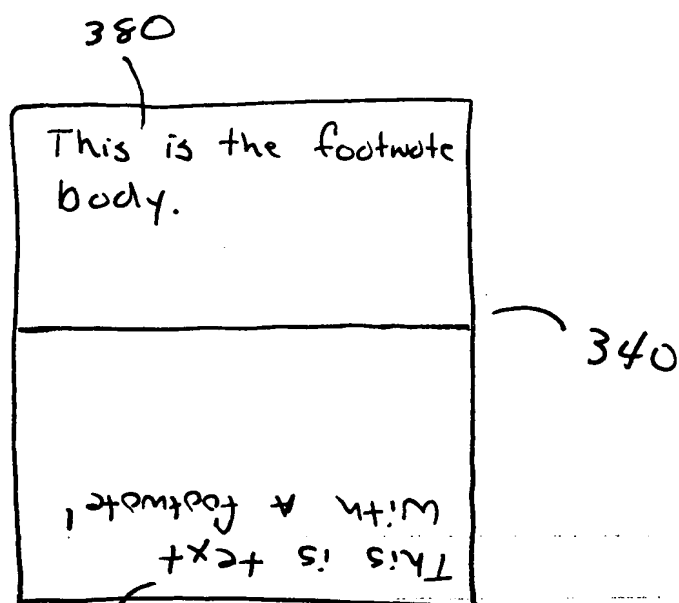 380
This is the footnote
body.
340
This is text
with A footnote'